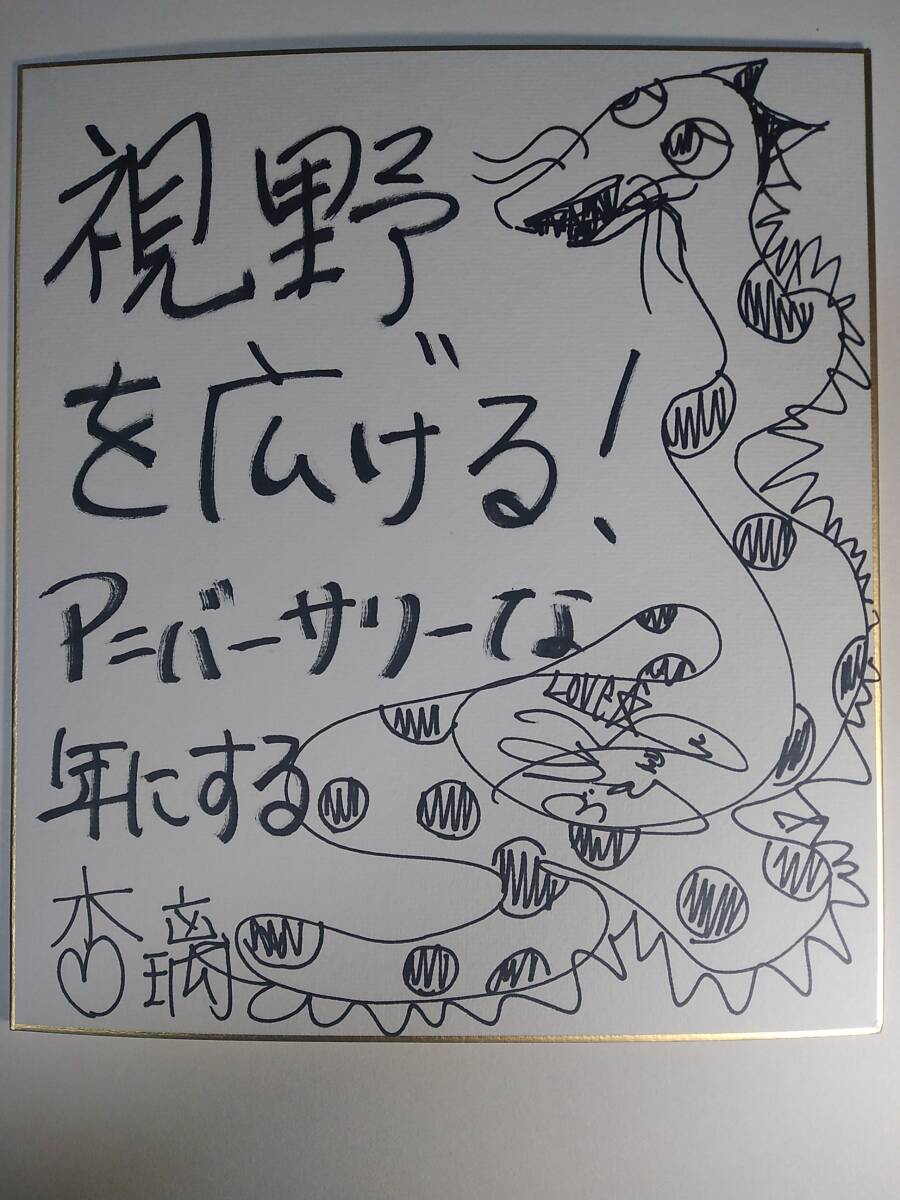 視野
を広げる!
アニバーサリーな
年にする
杏璃
LOVE